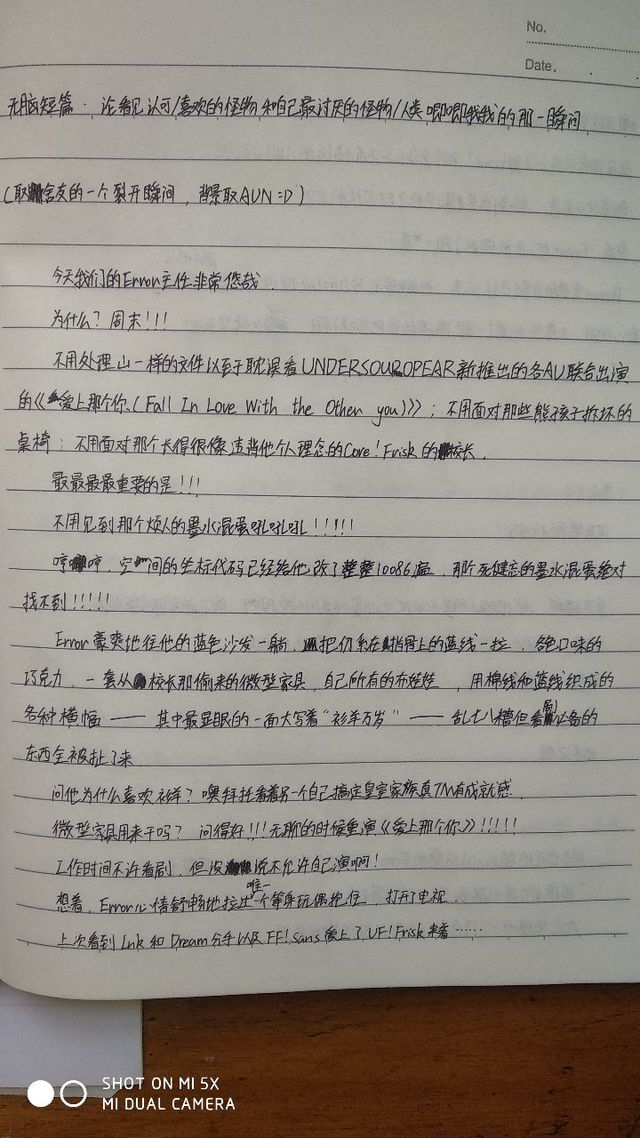 No.
Date.
无脑短篇·论看见认可/喜欢的怪物和自己最讨厌的怪物/人类唧唧我我的那一瞬间
(取舍友的一个裂开瞬间，背景取AUN =D)
今天我们的Error主任非常悠哉.
为什么？周末!!!
不用处理山一样的文件以至于耽误看UNDERSOUROPEAR新推出的各AU联合出演
的《爱上那个你(Fall In Love With the Other you)》；不用面对那些熊孩子拆坏的
桌椅；不用面对那个长得很像违背他个人理念的Core!Frisk的校长.
最最最最重要的是!!!
不用见到那个烦人的墨水混蛋吼吼吼!!!!!
哼哼，空间的坐标代码已经给他改了整整10086遍，那个死健忘的墨水混蛋绝对
找不到!!!!!
Error豪爽地往他的蓝色沙发一躺，把仍系在指骨上的蓝线一拉，各色口味的
巧克力，一套从校长那偷来的微型家具，自己所有的布娃娃，用棉线和蓝线织成的
各种横幅——其中最显眼的一面大写着“衫羊万岁”——乱七八糟但看剧必备的
东西全被扯了来.
问他为什么喜欢衫羊？噢拜托看着另一个自己搞定皇室家族真TM有成就感.
微型家具用来干吗？问得好!!!无聊的时候重演《爱上那个你》!!!!!
工作时间不许看剧，但没说不允许自己演啊!
想着，Error心情舒畅地拉出唯一一个等身玩偶抱住，打开了电视.
上次看到Ink和Dream分手以及FF!Sans爱上了UF!Frisk来着……
SHOT ON MI 5X
MI DUAL CAMERA